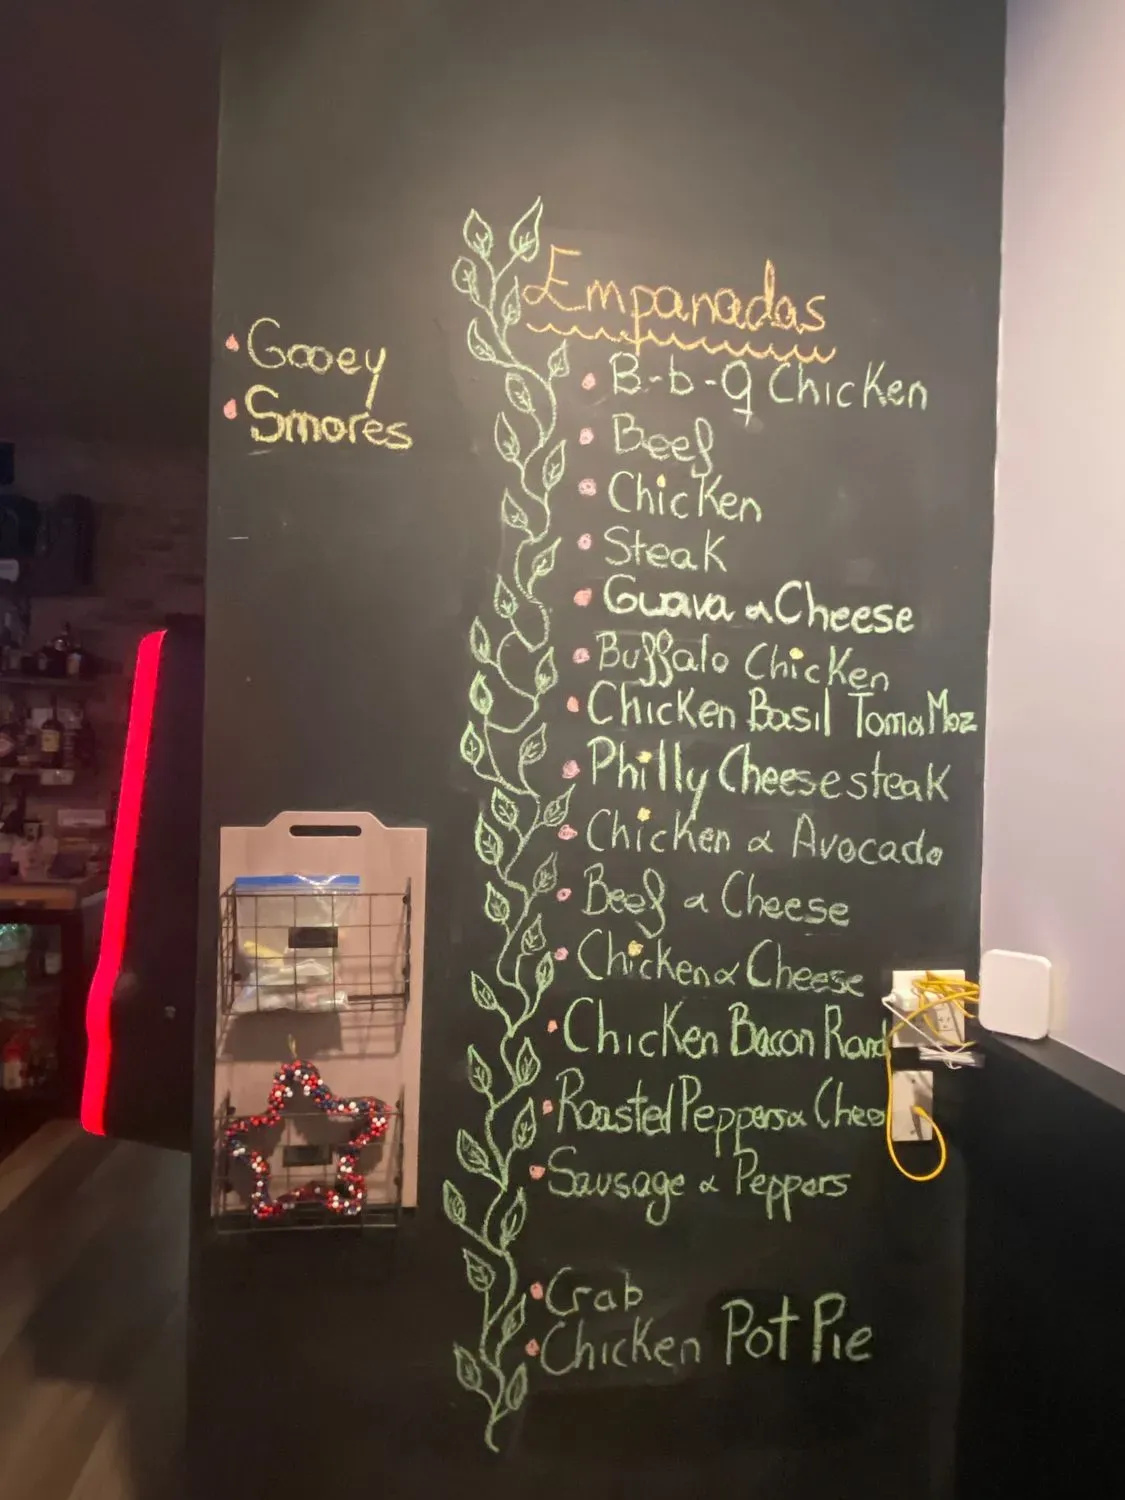 Gooey
Smores
Empanadas
B-b-q Chicken
Beef
Chicken
Steak
Guava & Cheese
Buffalo Chicken
Chicken Basil Toma Moz
Philly Cheesesteak
Chicken & Avocado
Beef & Cheese
Chicken & Cheese
Chicken Bacon Ranc
Roasted Peppers & Chee
Sausage & Peppers
Crab
Chicken Pot Pie